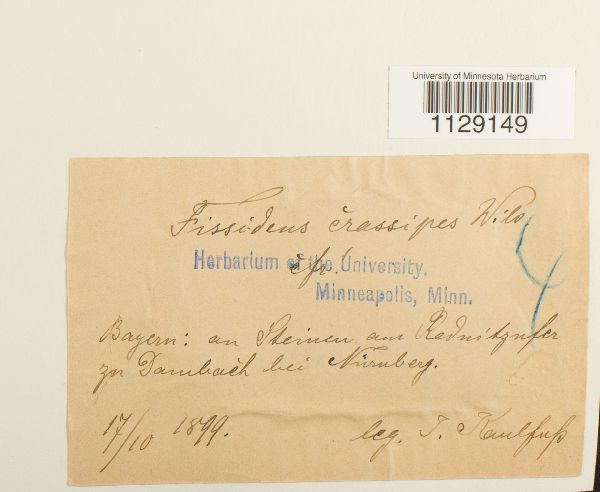 University of Minnesota Herbarium
1129149
Fissidens crassipes Wils
c. fr.
Herbarium of the University,
Minneapolis, Minn.
Bayern: an Steinen am Rednitzufer
zu Dambach bei Nürnberg.
17/10 1899. leg. J. Kaulfuß